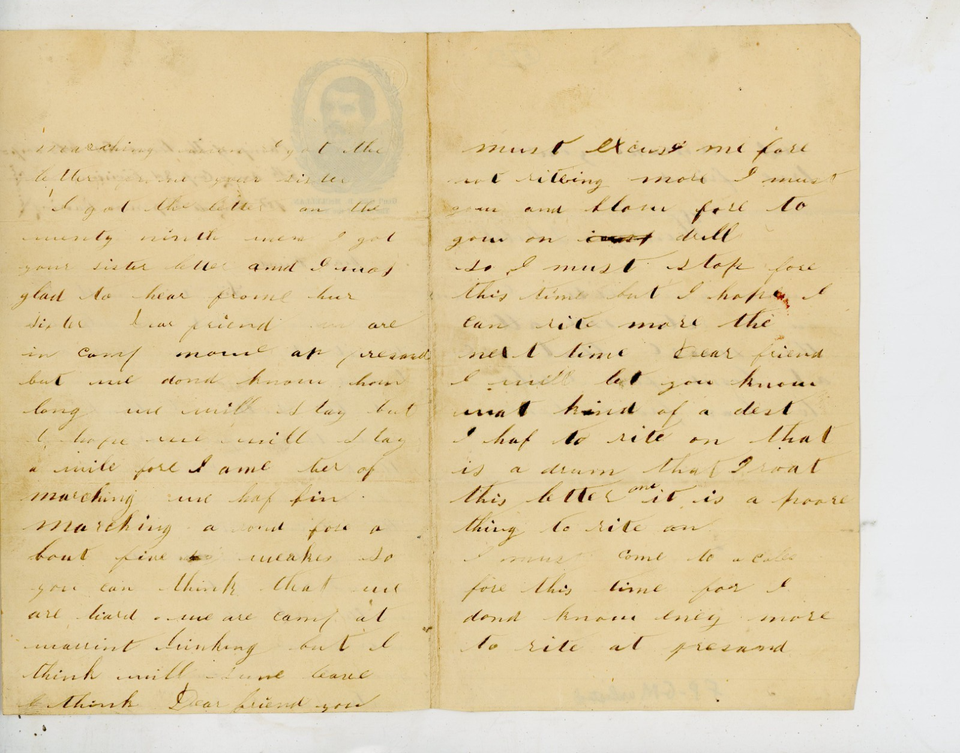 marching when I got the
letter your sister
I got the letter on the
twenty ninth wen I got
your sister letter and I was
glad to hear frome her
sister Dear friend we are
in camp nowe ap presand
but we dond know how
long we will stay but
I hope we will stay
a wile fore I ame ter of
marching we haf fin
marching a rond for a
bout five weakes so
you can think that we
are tiard we are camp at
but I
think will sune leave
I think Dear friend you
must excuse me fore
not riteing more I must
gow and blow fore to
gow on drill
so I must stop fore
this time but I hope I
can rite more the
next time Dear friend
I will let you know
wat kind of a dest
I haf to rite on that
is a drum that I roat
this letter one it is a poore
thing to rite on
I must come to a close
fore this time for I
dond know eney more
to rite at presand